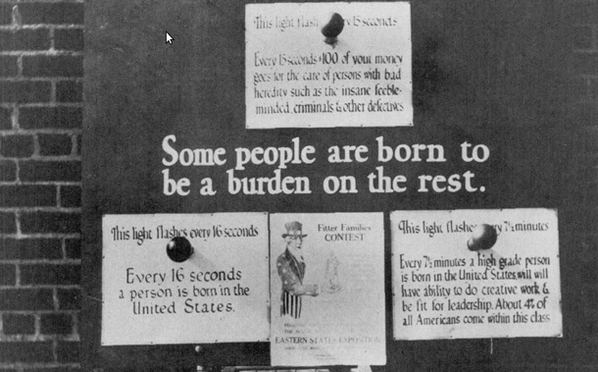 This light flash y 15 seconds
Every 15 seconds $100 of your money
goes for the care of persons with bad
heredity such as the insane feeble-
minded, criminals & other defectives
Some people are born to
be a burden on the rest.
This light flashes every 16 seconds
Every 16 seconds
a person is born in the
United States.
Fitter Families
CONTEST
EASTERN STATES EXPOSITION
This light flashe ry 7½ minutes
Every 7½ minutes a high grade person
is born in the United States will will
have ability to do creative work &
be fit for leadership. About 4% of
all Americans come within this class